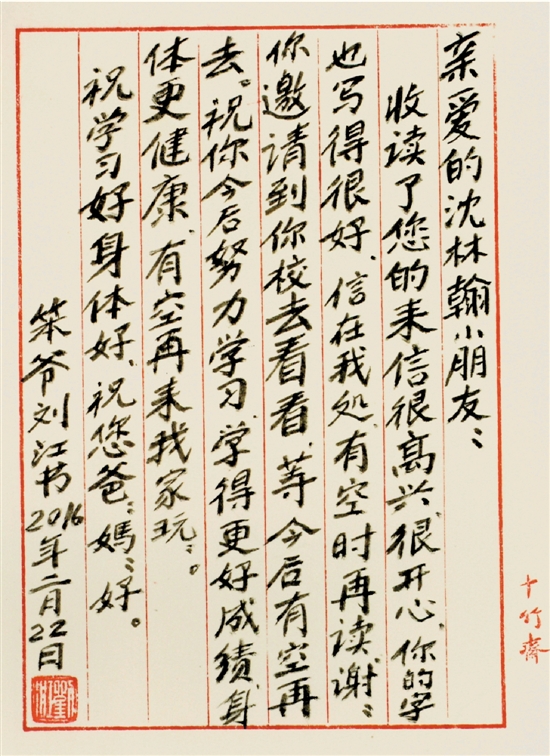 亲爱的沈林翰小朋友：
收读了您的来信很高兴、很开心、你的字
也写得很好、信在我处、有空时再读、谢〻
你邀请到你校去看看、等今后有空再
去。祝你今后努力学习、学得更好成绩、身
体更健康、有空再来我家玩〻。
祝学习好身体好、祝您爸〻妈〻好。
爷刘江书
2016年二月22日
十竹斋